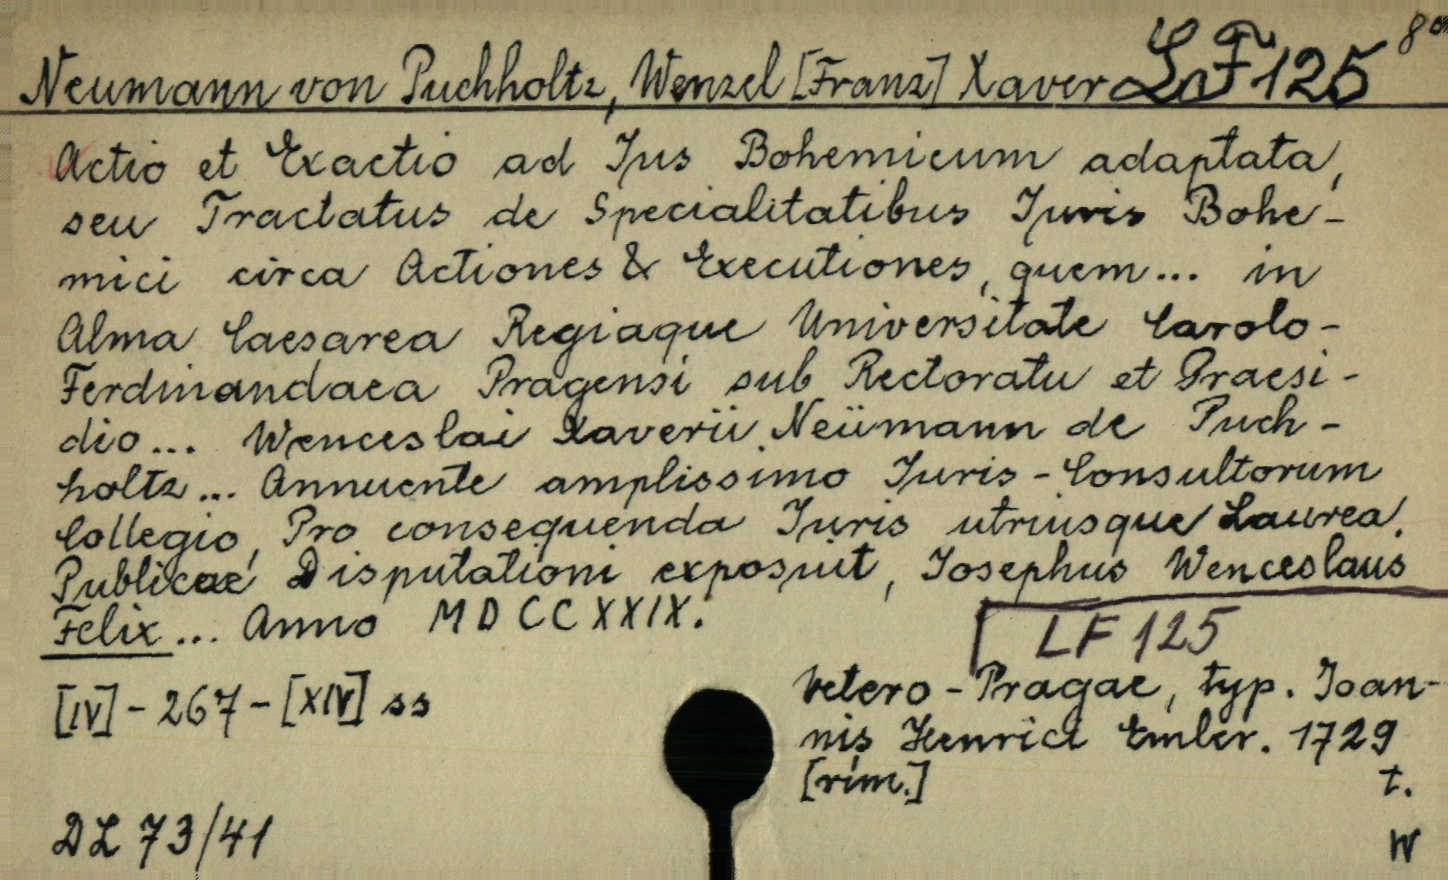 Neumann von Puchholtz, Wenzel [Franz] Xaver LF 125
Actio et Exactio ad Jus Bohemicum adaptata,
seu Tractatus de Specialitatibus Juris Bohe-
mici circa Actiones & Executiones, quem... in
Alma Caesarea Regiaque Universitate Carolo-
Ferdinandaea Pragensi sub Rectoratu et Praesi-
dio... Wenceslai Xaverii Neümann de Puch-
holtz... Annuente amplissimo Juris-Consultorum
Collegio, Pro consequenda Juris utriusque Laurea.
Publicae Disputationi exposuit, Josephus Wenceslaus
Felix... Anno MDCCXXIX.
LF 125
[IV] - 267 - [XIV] ss
Vetero-Pragae, typ. Joan-
nis Henrici Ember. 1729
[rím.] t.
DL 73/41
W